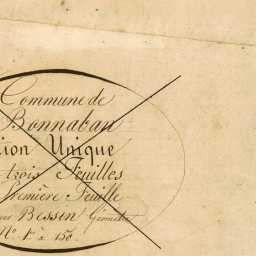 Commune de
Bonnabau
ion Unique
trois Feuilles
Première Feuille
Bessin Géomètre
Nº 1 à 150.